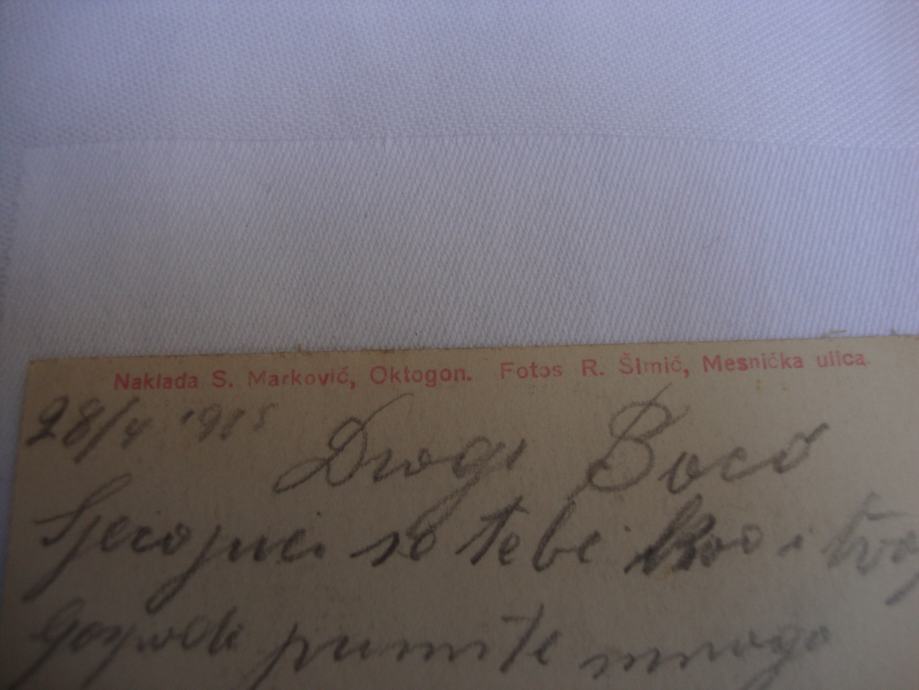 Naklada S. Marković, Oktogon. Fotos R. Šimić, Mesnička ulica
28/4 1915
Dragi Boco
Sjećajući se tebe kao i
primite mnogo